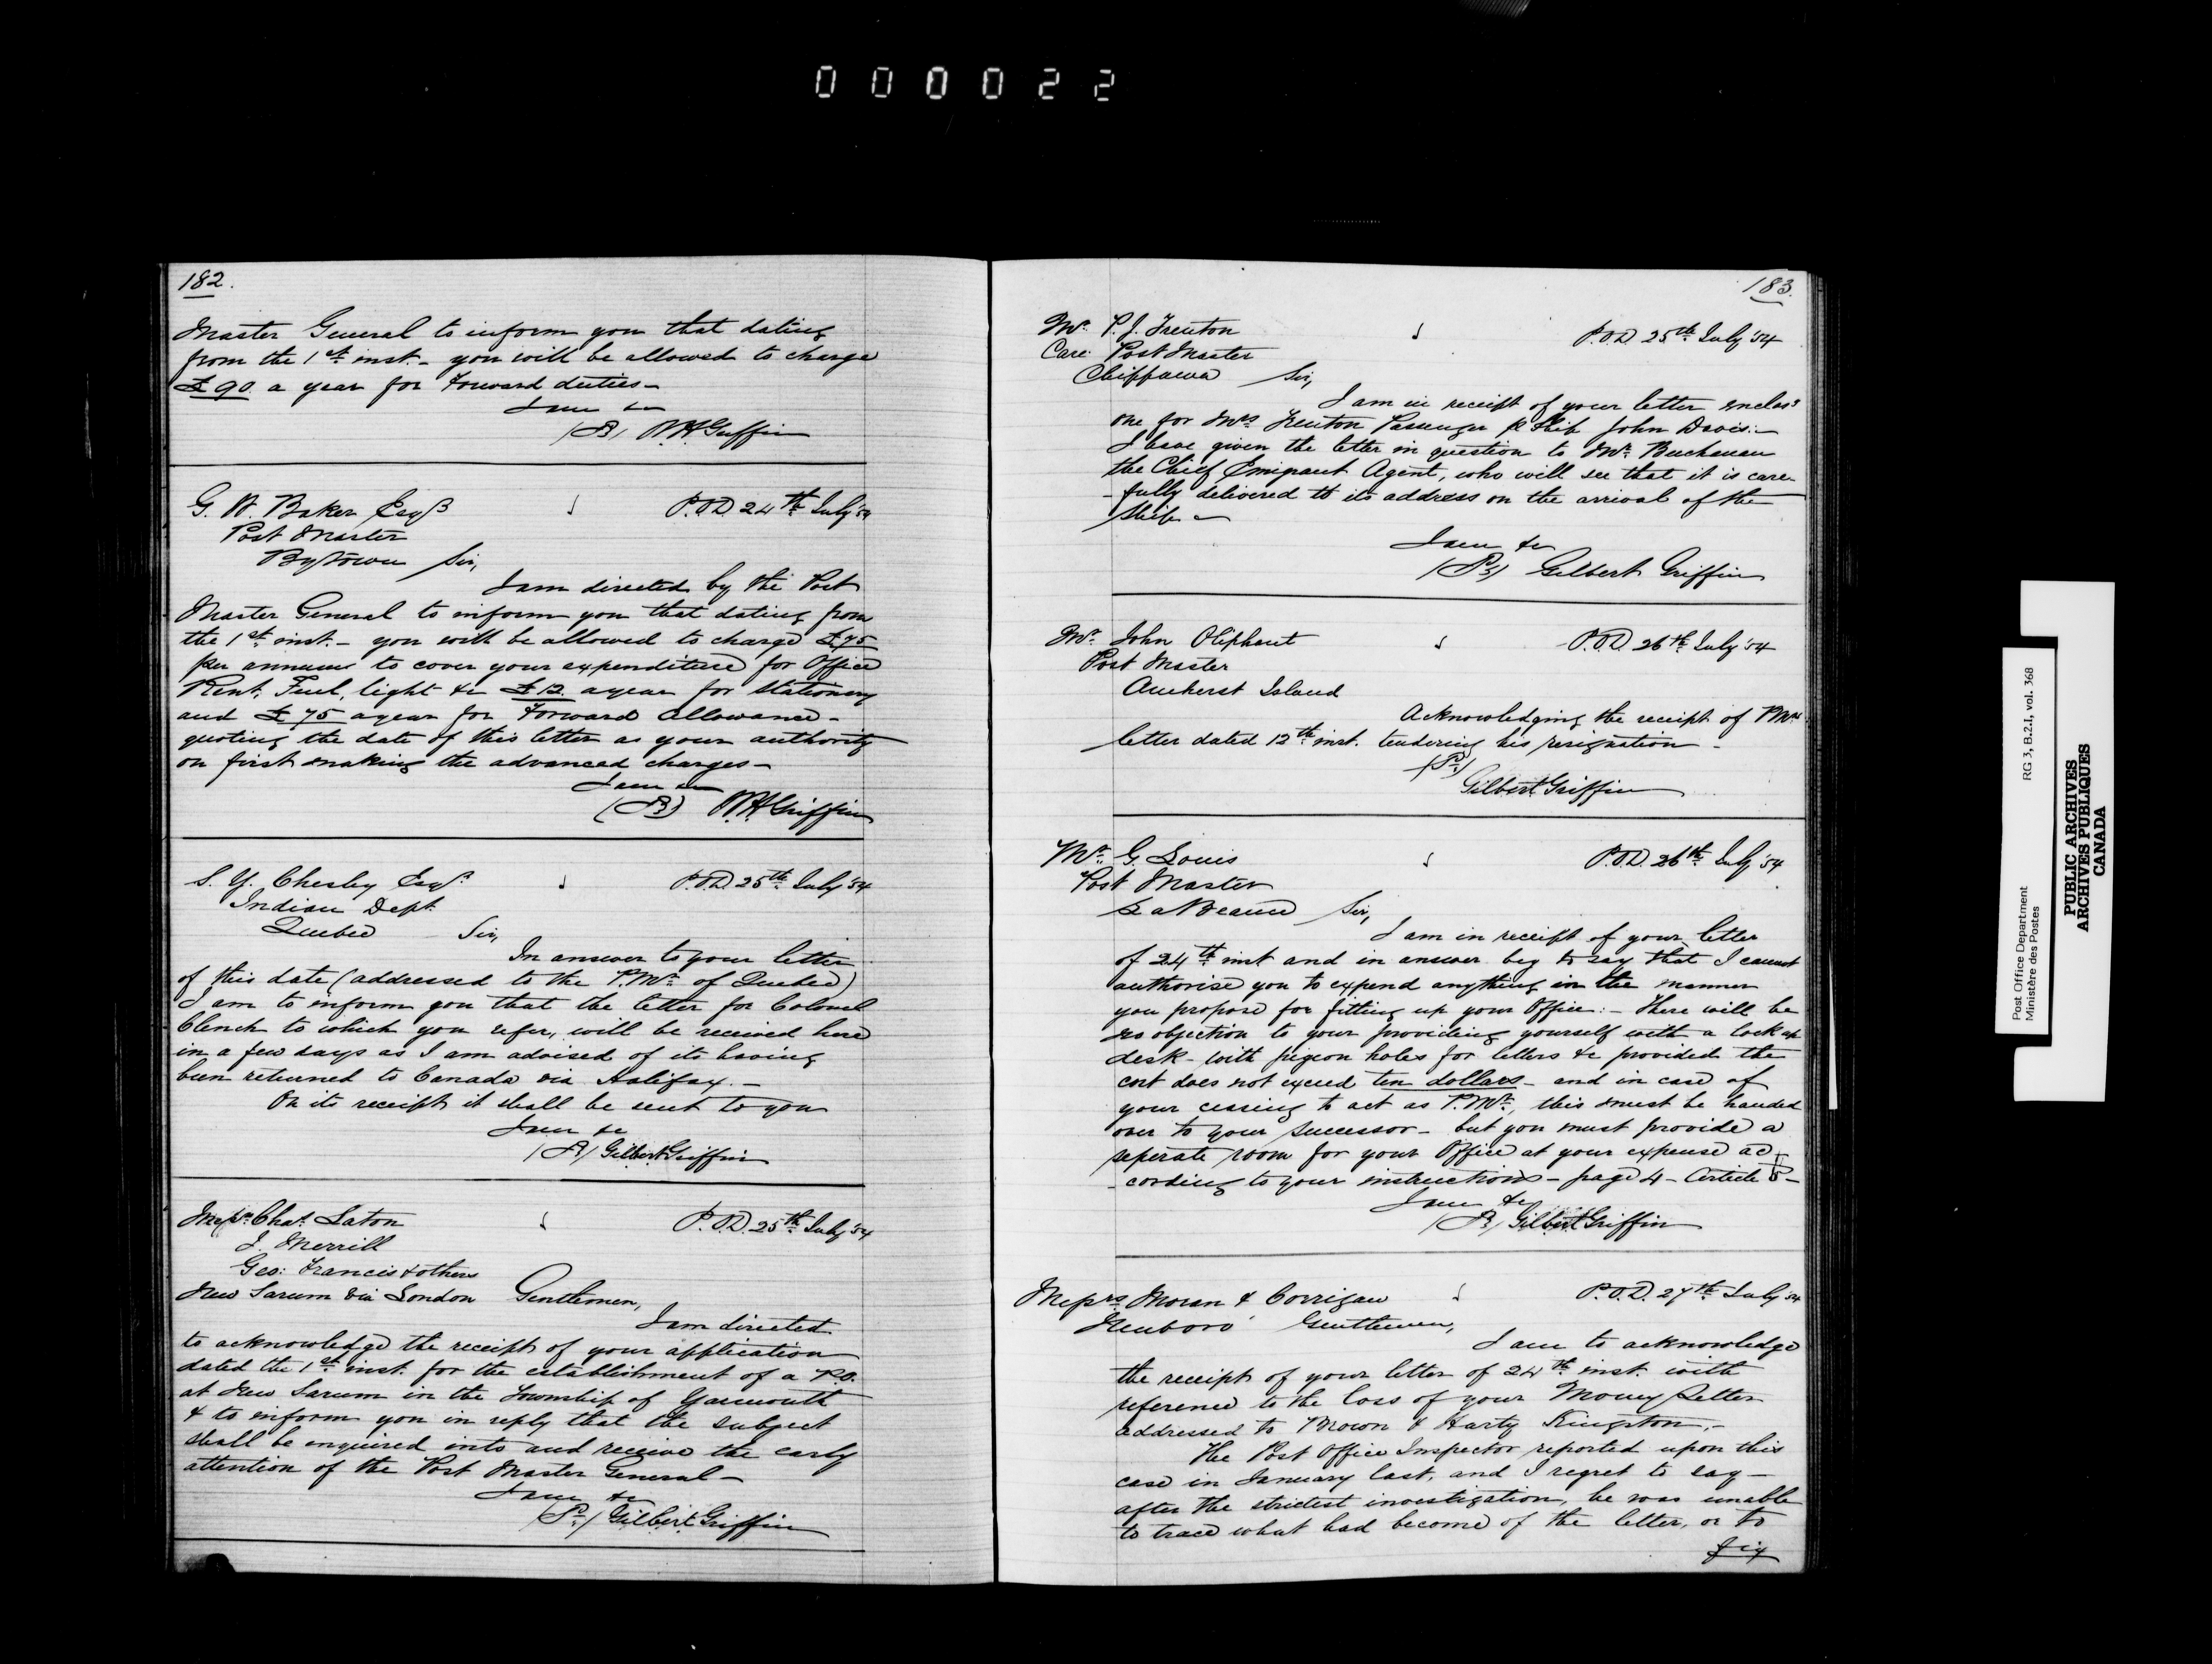 000022
182.
Master General to inform you that dating
from the 1st inst. - you will be allowed to charge
£90 a year for Forward duties -
I am &c
W.H. Griffin
G. W. Baker Esqr
P.O.D. 24th July '54
Post Master
Bytown Sir,
I am directed by the Post
Master General to inform you that dating from
the 1st inst. - you will be allowed to charge £75
per annum to cover your expenditure for Office
Rent, Fuel, light &c £12 a year for Stationery
and £75 a year for Forward allowance -
quoting the date of this letter as your authority
on first making the advanced charges -
I am &c
W.H. Griffin
S. Y. Chesley Esqr.
P.O.D. 25th July '54
Indian Dept.
Quebec Sir,
In answer to your letter
of this date (addressed to the P.Mr. of Quebec)
I am to inform you that the letter for Colonel
Clench to which you refer, will be received here
in a few days as I am advised of its having
been returned to Canada via Halifax. -
On its receipt it shall be sent to you
I am &c
Gilbert Griffin
Messrs Chas. Eaton
P.O.D. 25th July '54
J. Merrill
Geo: Francis & others
New Sarum via London Gentlemen,
I am directed
to acknowledge the receipt of your application
dated the 1st inst. for the establishment of a P.O.
at New Sarum in the Township of Yarmouth
& to inform you in reply that the subject
shall be enquired into and receive the early
attention of the Post Master General -
I am &c
Gilbert Griffin
183.
Mr. P. J. Trenton
P.O.D. 25th July '54
Care Post Master
Chippawa Sir,
I am in receipt of your letter enclosg
one for Mrs Trenton Passenger p Ship John Davis: -
I have given the letter in question to Mr. Buchanan
the Chief Emigrant Agent, who will see that it is care-
-fully delivered to its address on the arrival of the
Ship -
I am &c
Gilbert Griffin
Mr. John Oliphant
P.O.D. 26th July '54
Post Master
Amherst Island
Acknowledging the receipt of
letter dated 12th inst. tendering his resignation -
Gilbert Griffin
Mr. G. Louis
P.O.D. 26th July '54
Post Master
La Beauce Sir,
I am in receipt of your letter
of 24th inst and in answer beg to say that I cannot
authorise you to expend anything in the manner
you propose for fitting up your Office: - There will be
no objection to your providing yourself with a lock up
desk - with pigeon holes for letters &c provided the
cost does not exceed ten dollars - and in case of
your ceasing to act as P.Mr., this must be handed
over to your successor - but you must provide a
seperate room for your Office at your expense ac
-cording to your instructions - page 4 - Article 5 -
I am &c
Gilbert Griffin
Messrs Moran & Corrigan
P.O.D. 27th July '54
Newboro' Gentlemen,
I am to acknowledge
the receipt of your letter of 24th inst. with
reference to the loss of your Money Letter
addressed to Brown & Harty Kingston, -
The Post Office Inspector reported upon this
case in January last, and I regret to say -
after the strictest investigation, he was unable
to trace what had become of the letter, or to
fix
Post Office Department
Ministère des Postes
RG 3, B.2.I, vol. 368
PUBLIC ARCHIVES
ARCHIVES PUBLIQUES
CANADA